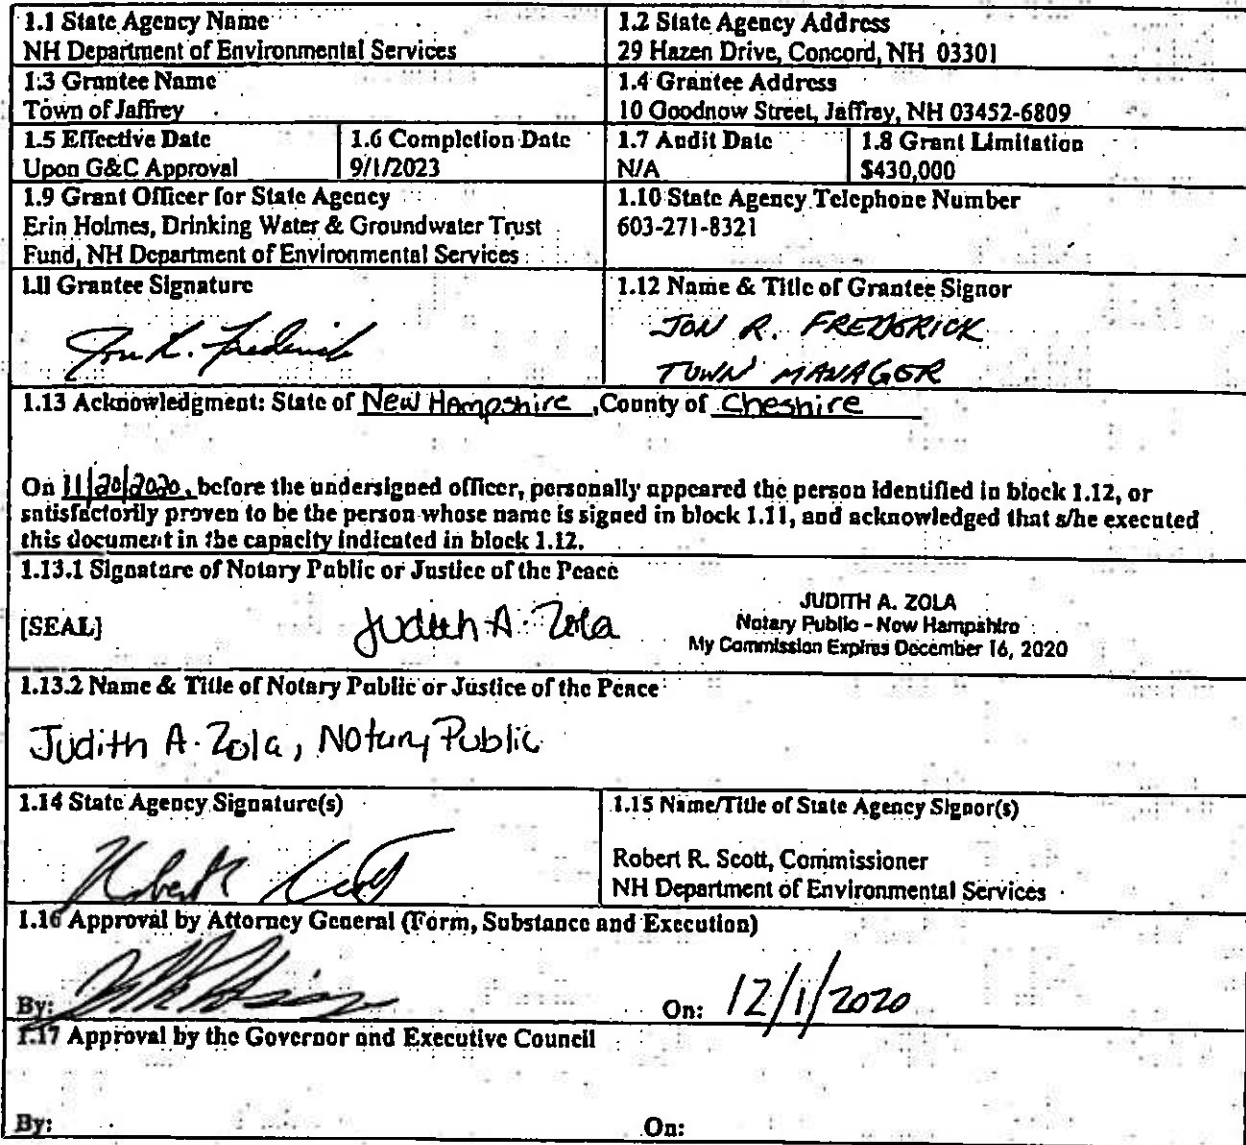 1.1 State Agency Name
NH Department of Environmental Services
1.2 State Agency Address
29 Hazen Drive, Concord, NH 03301
1.3 Grantee Name
Town of Jaffrey
1.4 Grantee Address
10 Goodnow Street, Jaffray, NH 03452-6809
1.5 Effective Date
Upon G&C Approval
1.6 Completion Date
9/1/2023
1.7 Audit Date
N/A
1.8 Grant Limitation
$430,000
1.9 Grant Officer for State Agency
Erin Holmes, Drinking Water & Groundwater Trust
Fund, NH Department of Environmental Services
1.10 State Agency Telephone Number
603-271-8321
1.11 Grantee Signature
Jon R. Frederick
1.12 Name & Title of Grantee Signor
JON R. FREDERICK
TOWN MANAGER
1.13 Acknowledgment: State of New Hampshire, County of Cheshire
On 11/20/2020, before the undersigned officer, personally appeared the person identified in block 1.12, or
satisfactorily proven to be the person whose name is signed in block 1.11, and acknowledged that s/he executed
this document in the capacity indicated in block 1.12.
1.13.1 Signature of Notary Public or Justice of the Peace
[SEAL]
Judith A. Zola
JUDITH A. ZOLA
Notary Public - New Hampshire
My Commission Expires December 16, 2020
1.13.2 Name & Title of Notary Public or Justice of the Peace
Judith A. Zola, Notary Public
1.14 State Agency Signature(s)
1.15 Name/Title of State Agency Signor(s)
Robert R. Scott, Commissioner
NH Department of Environmental Services
1.16 Approval by Attorney General (Form, Substance and Execution)
By:
On: 12/1/2020
1.17 Approval by the Governor and Executive Council
By:
On: